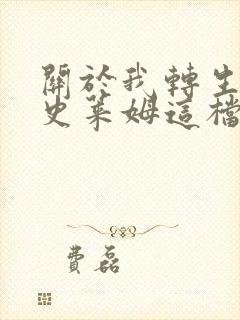 關於我轉生
史萊姆這檔
費磊